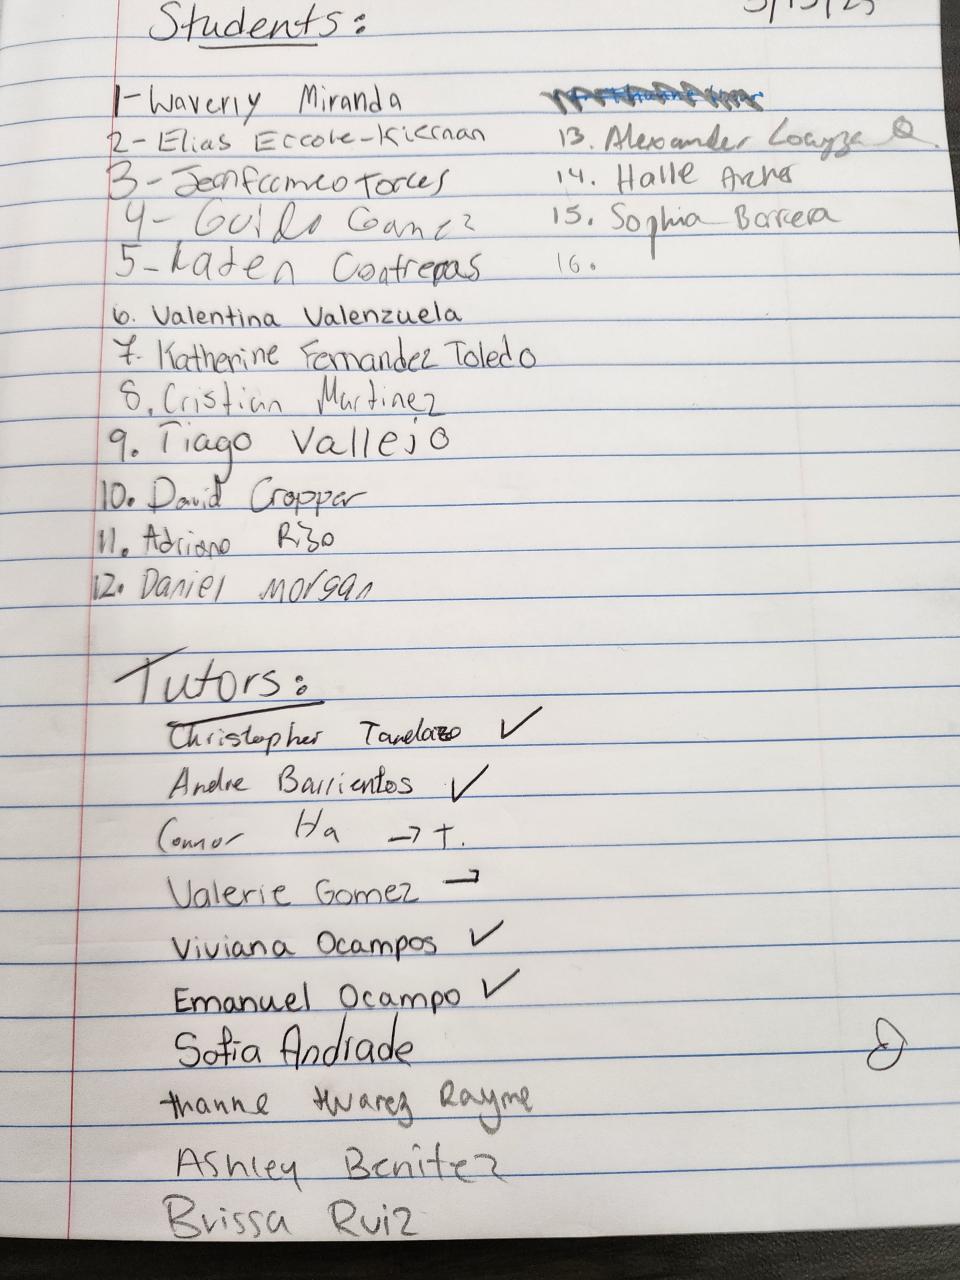 Students:
1- Waverly Miranda
2- Elias Eccole-Kiernan
3- Torres
4- Guido Gamez
5- Kaden Contreras
6. Valentina Valenzuela
7. Katherine Fernandez Toledo
8. Cristian Martinez
9. Tiago Vallejo
10. David Cropper
11. Adriano Rizo
12. Daniel Morgan
13. Alexander Loayza
14. Halle Archer
15. Sophia Barrera
16.
Tutors:
Christopher Tandazo ✓
Andre Barrientos ✓
Connor Ha → T.
Valerie Gomez →
Viviana Ocampos ✓
Emanuel Ocampo ✓
Sofia Andrade
Rayme
Ashley Benitez
Brissa Ruiz